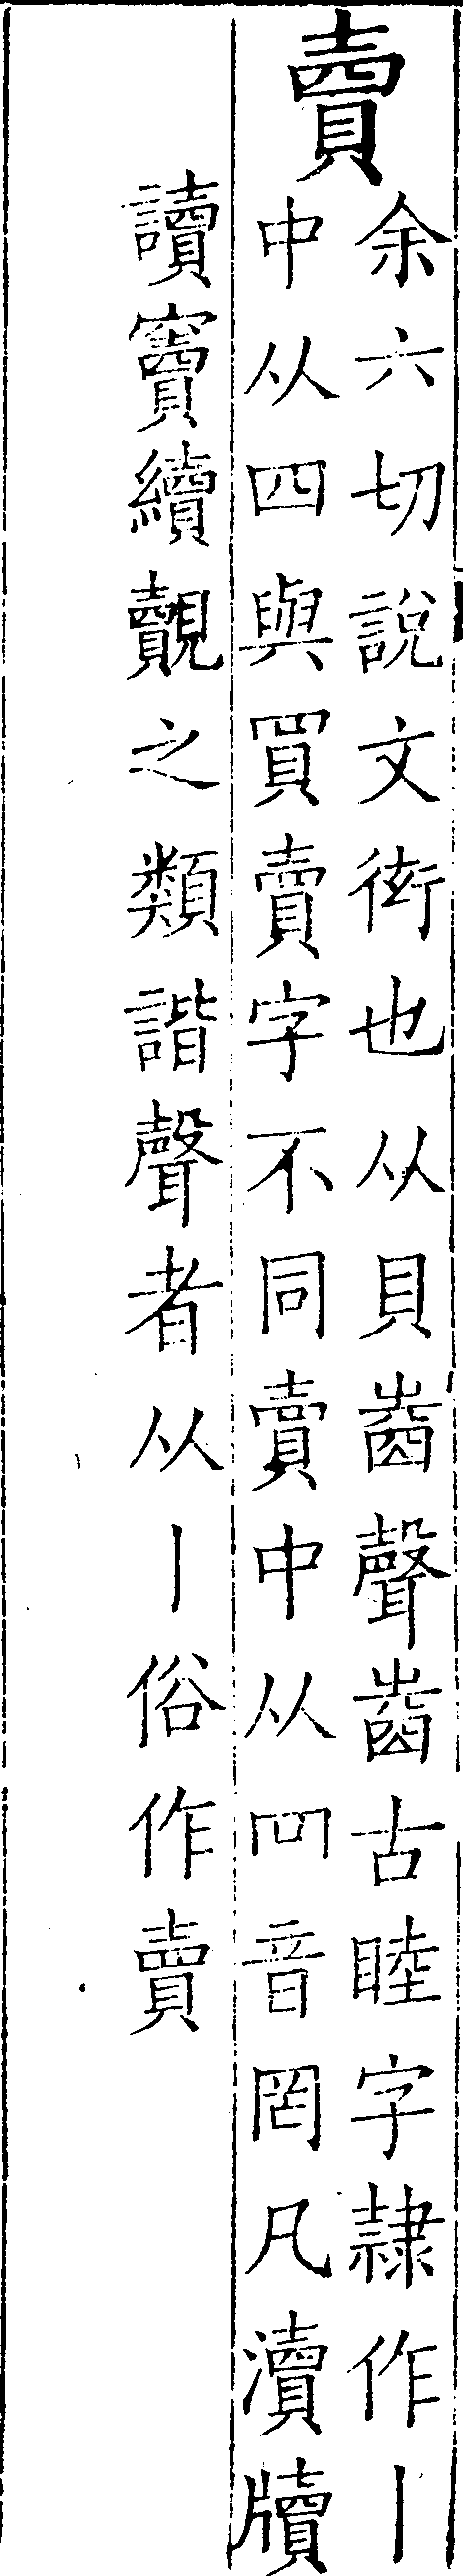 賣
余六切說文衒也从貝𡍬聲𡍬古睦字隷作丨
中从四與買賣字不同賣中从罒音罔凡瀆牘
讀竇續覿之類諧聲者从丨俗作賣